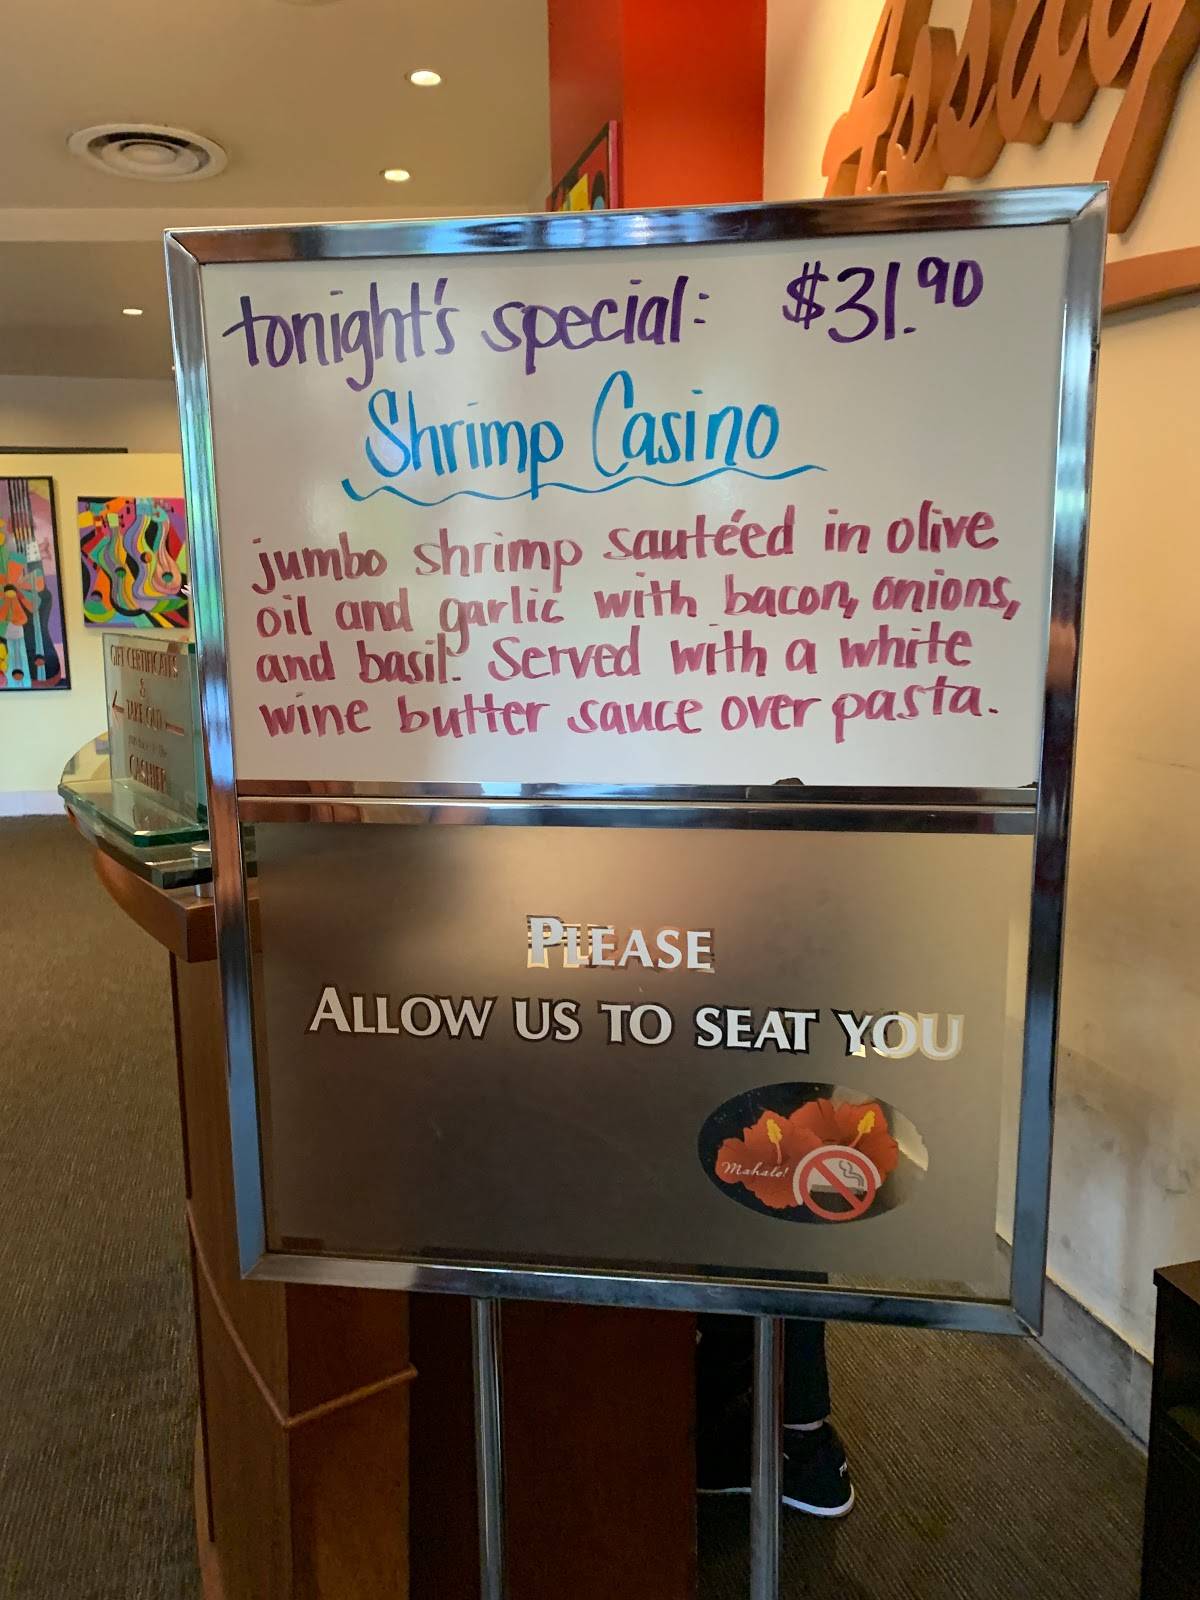 Assag
tonight's special: $31.90
Shrimp Casino
jumbo shrimp sautéed in olive
oil and garlic with bacon, onions,
and basil. Served with a white
wine butter sauce over pasta.
GIFT CERTIFICATES
&
TAKE OUT
CASHIER
PLEASE
ALLOW US TO SEAT YOU
Mahalo!